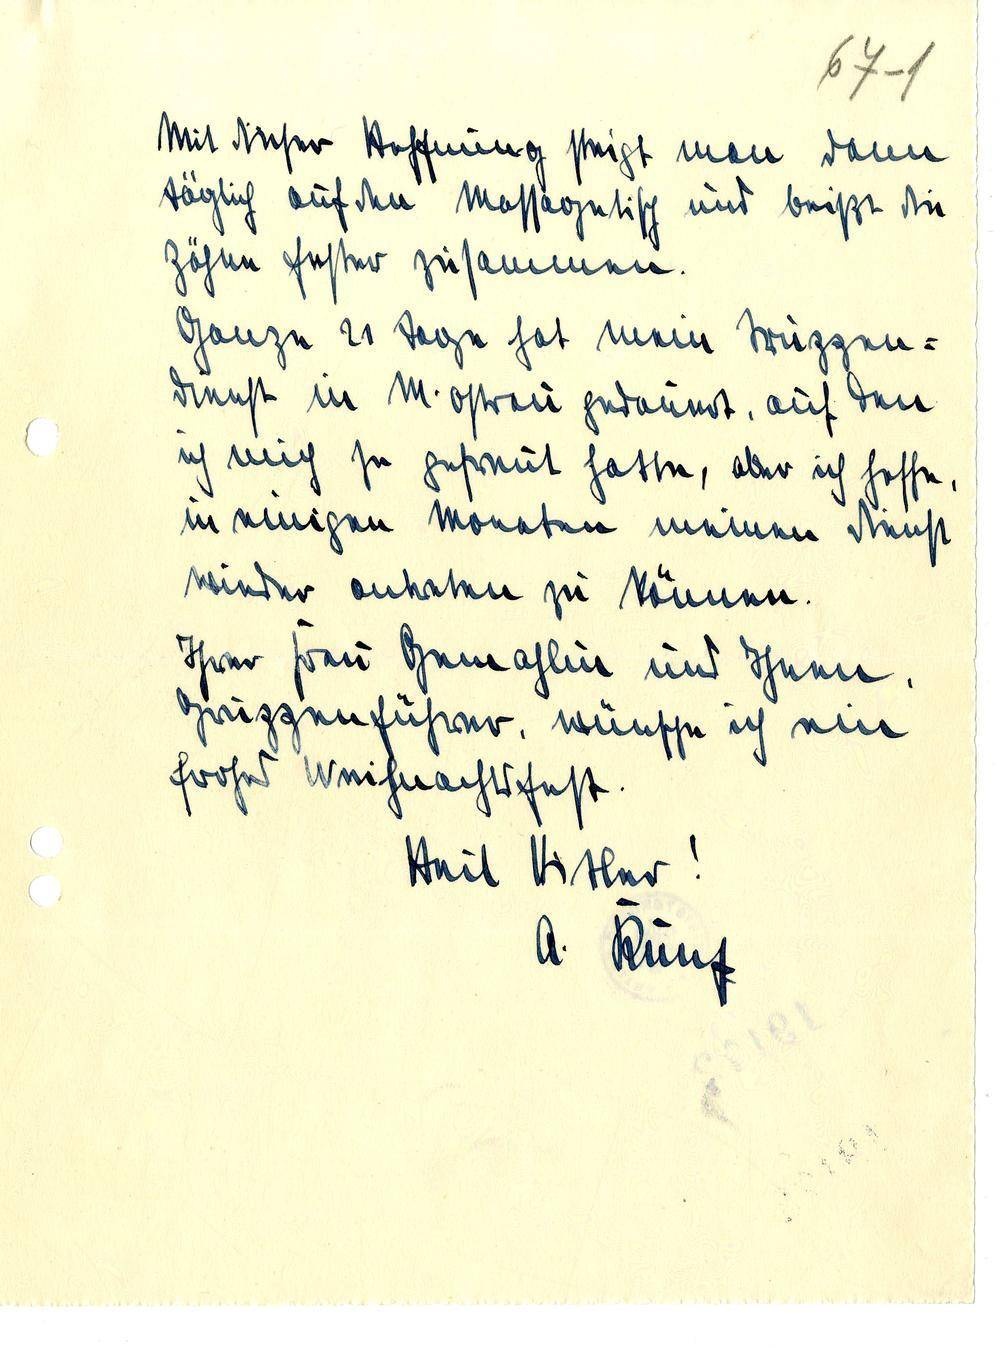 67-1
Mit dieser Hoffnung steigt man dann
täglich auf den Massagetisch und beißt die
Zähne fester zusammen.
Ganze 21 Tage hat mein Truppen=
dienst in M. Ostrau gedauert, auf den
ich mich so gefreut hatte, aber ich hoffe,
in einigen Monaten meinen Dienst
wieder antreten zu können.
Ihrer Frau Gemahlin und Ihnen,
Gruppenführer, wünsche ich ein
frohes Weihnachtsfest.
Heil Hitler!
A.